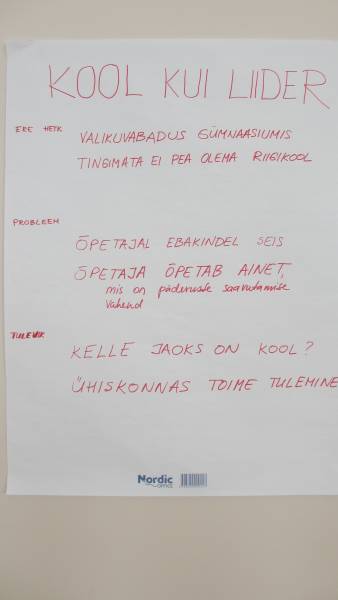 KOOL KUI LIIDER
ERE HETK
VALIKUVABADUS GÜMNAASIUMIS
TINGIMATA EI PEA OLEMA RIIGIKOOL
PROBLEEM
ÕPETAJAL EBAKINDEL SEIS
ÕPETAJA ÕPETAB AINET,
mis on pädevuste saavutamise
vahend
TULEVIK
KELLE JAOKS ON KOOL?
ÜHISKONNAS TOIME TULEMINE
Nordic
office